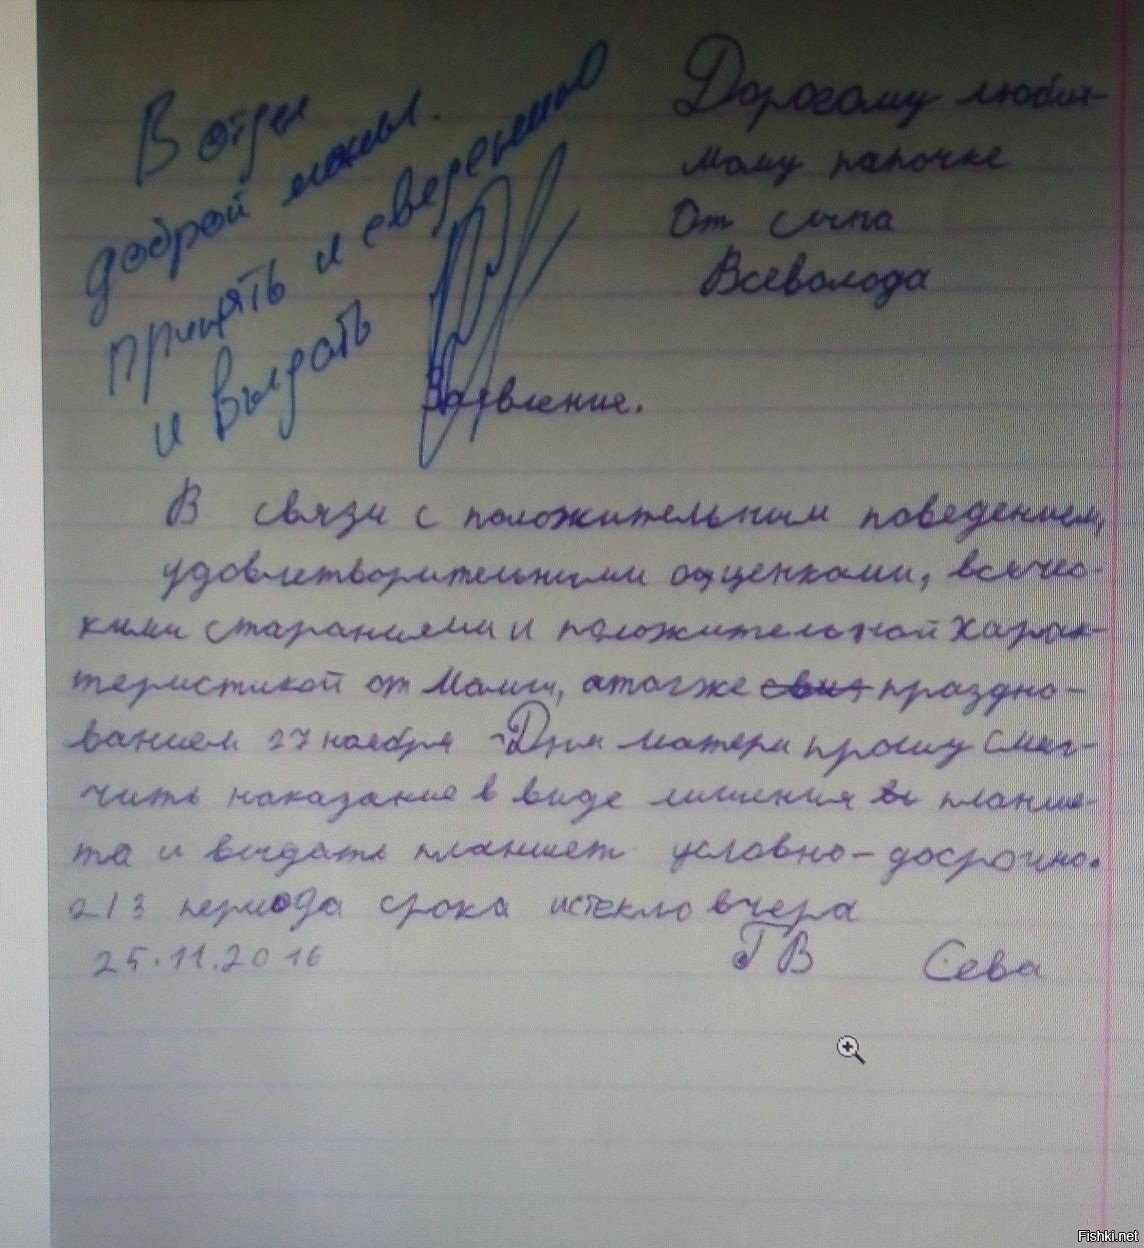 Дорогому люби-
мому папочке
От сына
Всеволода
В отдел
доброй мамы.
принять к сведению
и выдать
Заявление.
В связи с положительним поведением,
удовлетворительными оценками, всячес-
кими стараниями и положительной харак-
теристикой от Мамы, атагже праздно-
ванием 27 ноября Дня матери прошу смяг-
чить наказание в виде лишения планше-
та и выдать планшет условно-досрочно.
2/3 периода срока истекло вчера
25.11.2016 ГВ Сева
Fishki.net